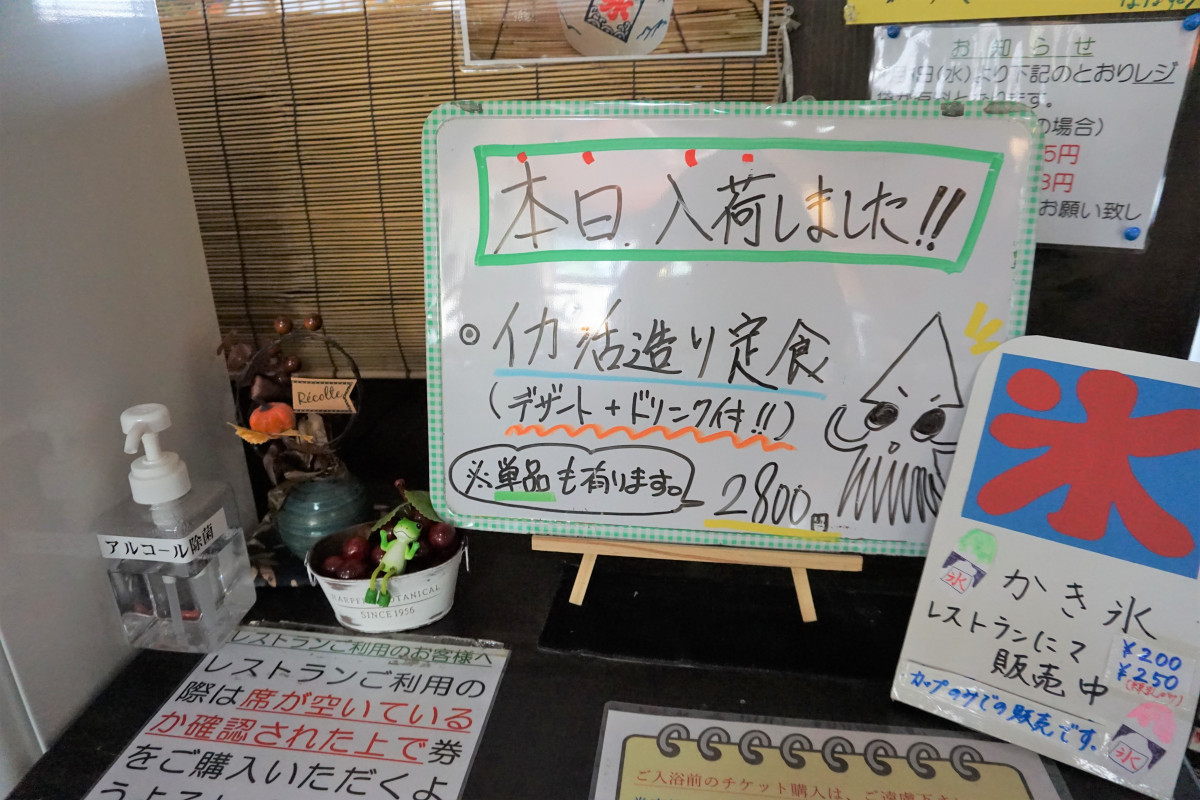 お知らせ
日(水)より下記のとおりレジ
の場合)
5円
3円
お願い致し
本日入荷しました!!
◎イカ活造り定食
(デザート+ドリンク付!!)
※単品も有ります。
2800円
Récolte
アルコール除菌
BOTANICAL
SINCE1956
氷
氷
かき氷
レストランにて
販売中
¥200
¥250
カップのみでの販売です。
氷
レストランご利用のお客様へ
レストランご利用の
際は席が空いている
か確認された上で券
をご購入いただくよ
ご入浴前のチケット購入は、ご遠慮下さい